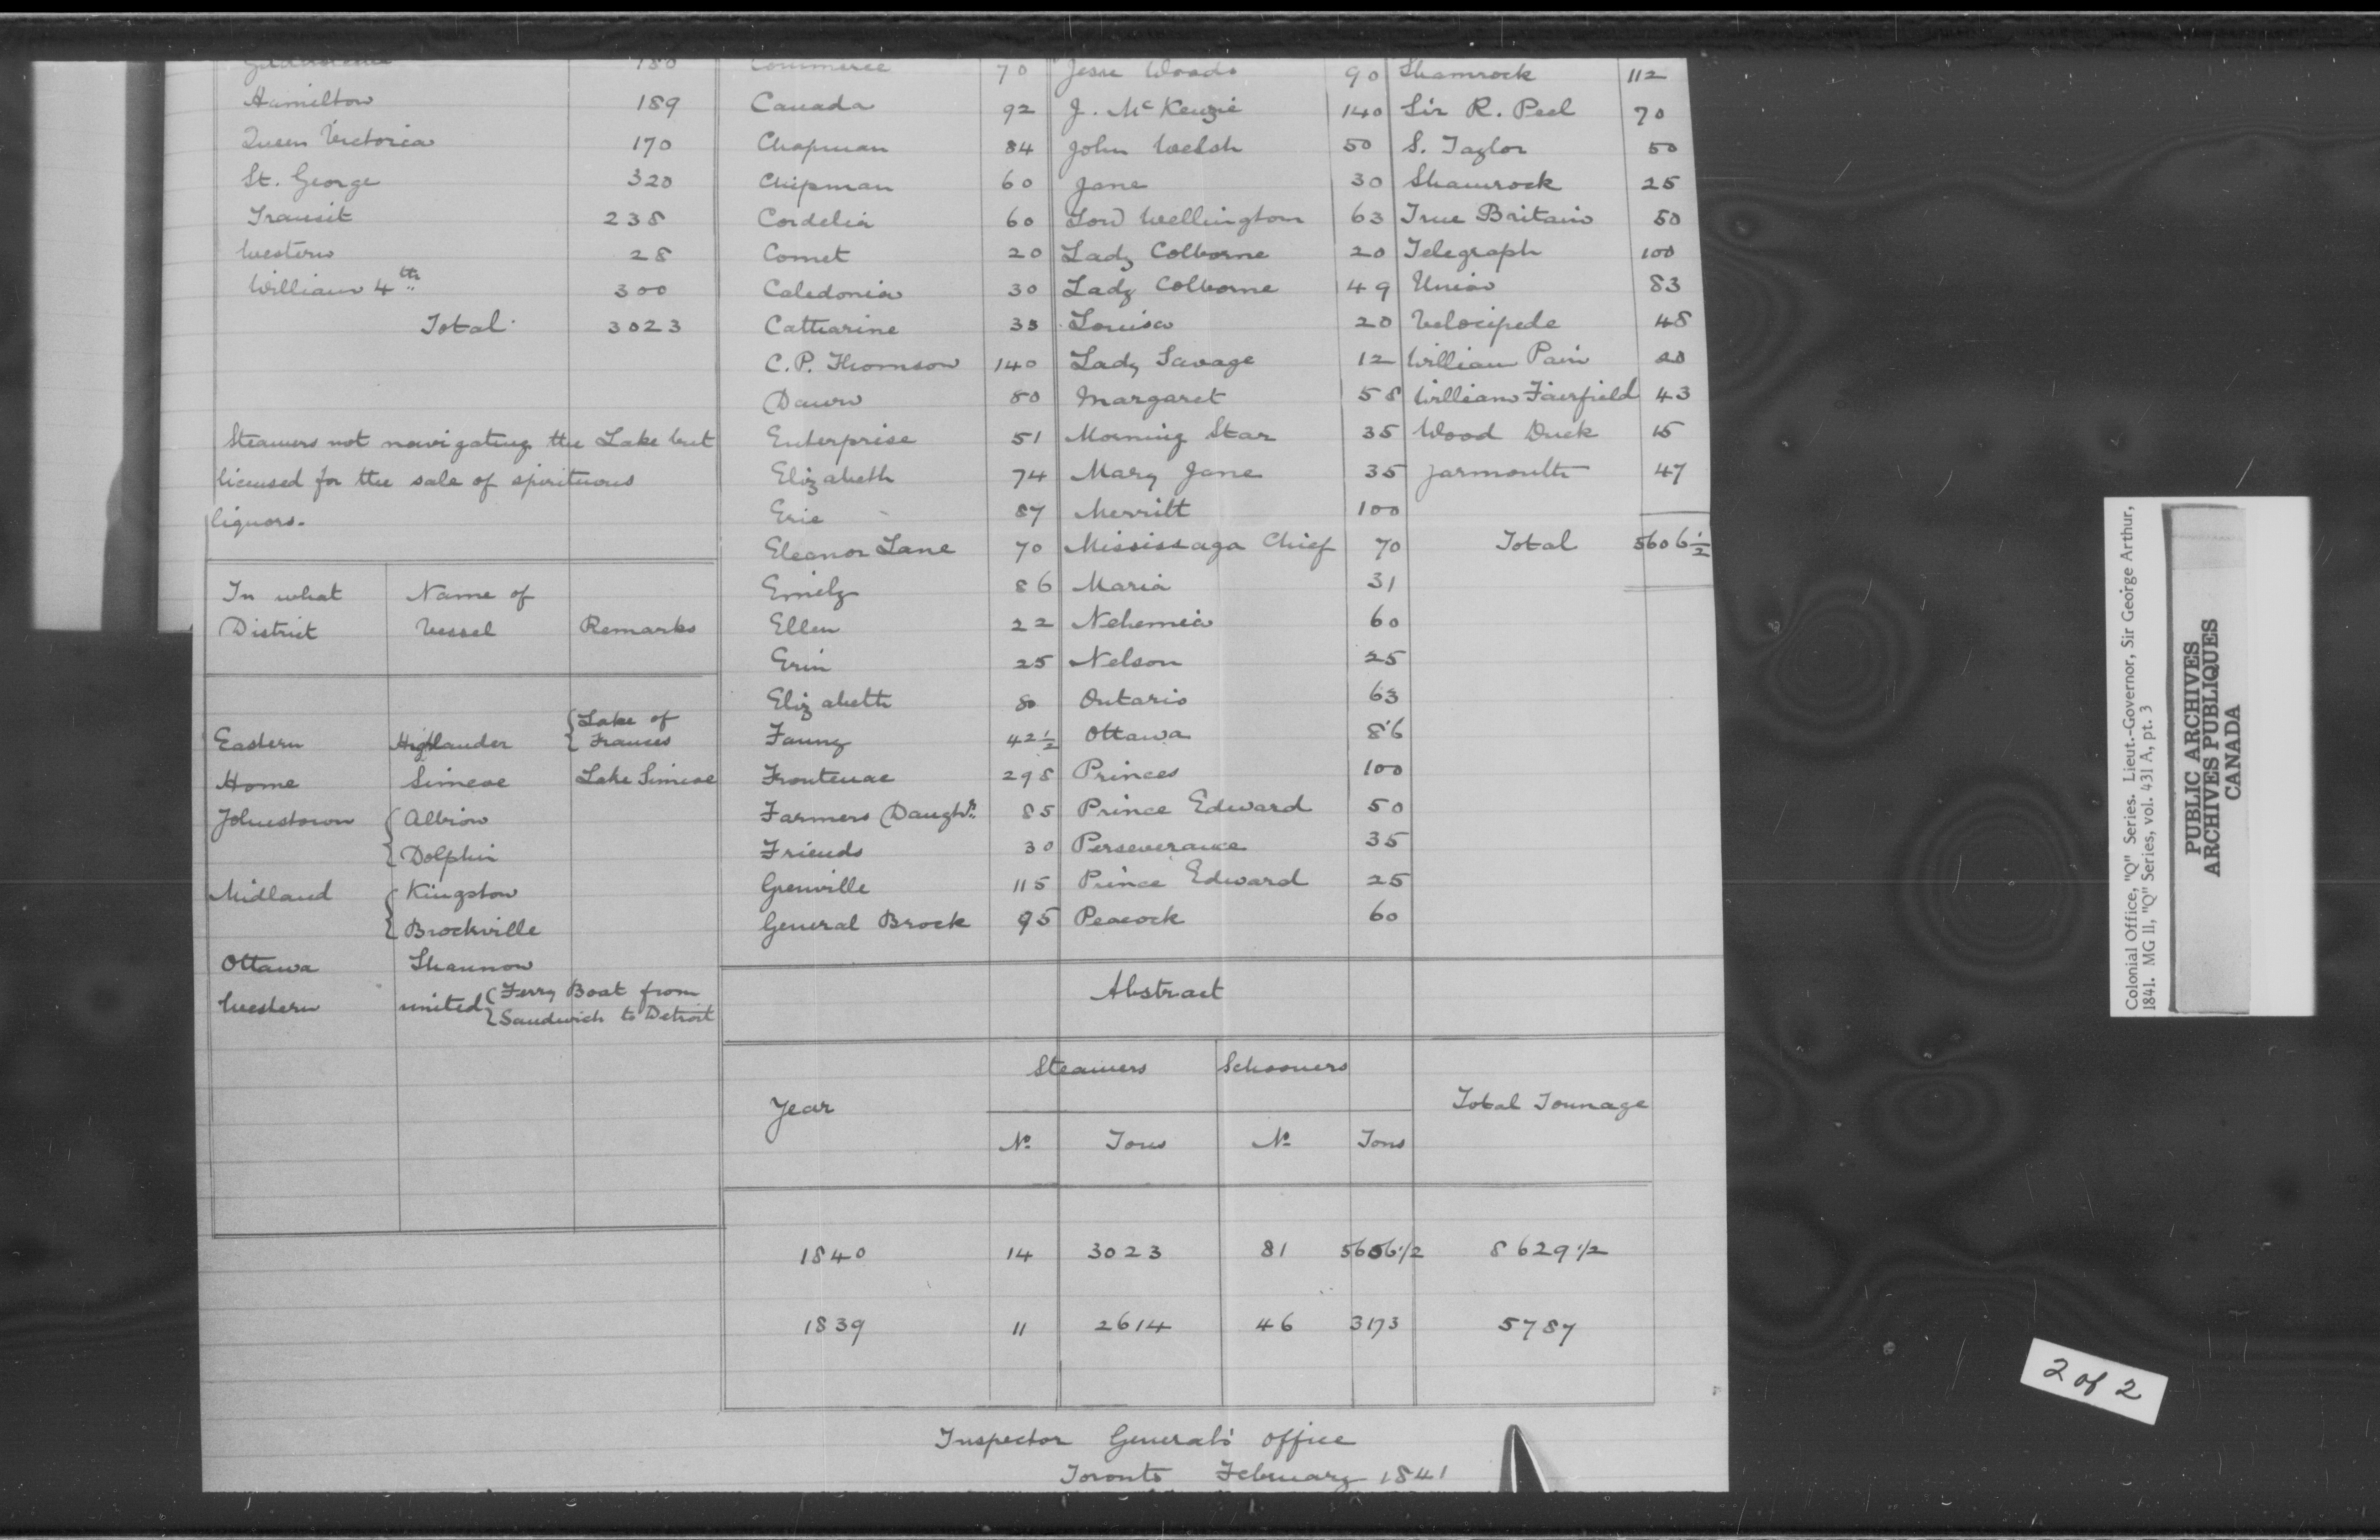 180 Commerce 70 Jesse Woods 90 Shamrock 112
Hamilton 189 Canada 92 J. McKenzie 140 Sir R. Peel 70
Queen Victoria 170 Chapman 84 John Welsh 50 S. Taylor 50
St. George 320 Chipman 60 Jane 30 Shamrock 25
Transit 238 Cordelia 60 Lord Wellington 63 True Britain 50
Western 28 Comet 20 Lady Colborne 20 Telegraph 100
William 4th 300 Caledonia 30 Lady Colborne 49 Union 83
Total 3023 Catharine 35 Louisa 20 Velocipede 48
C. P. Thomson 140 Lady Savage 12 William Pain 20
Dawn 80 Margaret 58 William Fairfield 43
Enterprise 51 Morning Star 35 Wood Duck 15
Elizabeth 74 Mary Jane 35 Yarmouth 47
Erie 87 Merritt 100
Eleonor Lane 70 Mississaga Chief 70 Total 5606 1/2
Emily 86 Maria 31
Ellen 22 Nehemia 60
Erin 25 Nelson 25
Elizabeth 80 Ontario 63
Fanny 42 1/2 Ottawa 86
Frontenac 298 Princes 100
Farmers Daughtr. 85 Prince Edward 50
Friends 30 Perseverance 35
Grenville 115 Prince Edward 25
General Brock 95 Peacock 60
Steamers not navigating the Lake but
licensed for the sale of spirituous
liquors.
In what Name of
District Vessel Remarks
Eastern Highlander { Lake of
Frances
Home Simcoe Lake Simcoe
Johnstown { Albion
Dolphin
Midland { Kingston
Brockville
Ottawa Shannon
Western united { Ferry Boat from
Sandwich to Detroit
Abstract
Steamers Schooners
Year Total Tonnage
No. Tons No. Tons
1840 14 3023 81 5606 1/2 8629 1/2
1839 11 2614 46 3173 5787
Inspector General's Office
Toronto February 1841
Colonial Office, "Q" Series. Lieut.-Governor, Sir George Arthur,
1841. MG 11, "Q" Series, vol. 431 A, pt. 3
PUBLIC ARCHIVES
ARCHIVES PUBLIQUES
CANADA
2 of 2